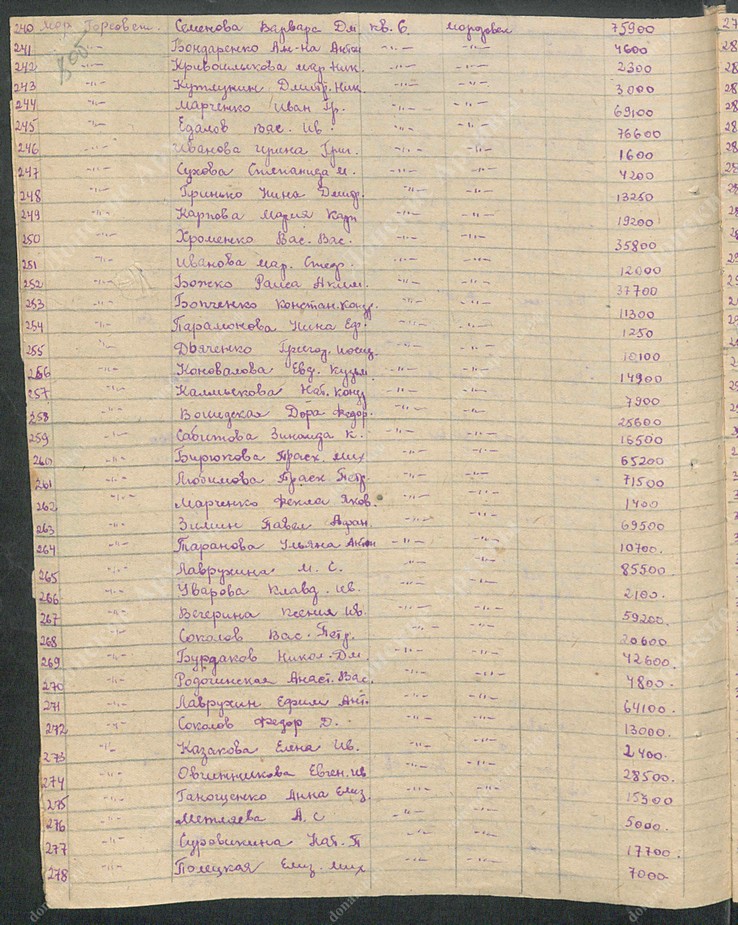 240 Горсовет. Семенова Варвара Дм кв. 6. 75900
241 -"- Бондаренко Ан-на Антон -"- -"- 4600
242 -"- Кривошлыкова мар. Ник. -"- -"- 2300
243 -"- Дмитр. Ник. -"- -"- 3000
244 -"- Марченко Иван Гр. -"- -"- 69100
245 -"- Едалов Вас. Ив. -"- -"- 76600
246 -"- Иванова Ирина Григ. -"- -"- 1600
247 -"- Сухова Степанида м. -"- -"- 4200
248 -"- Гринько Нина Дмитр. -"- -"- 13250
249 -"- Карпова Мария Карп -"- -"- 19200
250 -"- Хроменко Вас. Вас. -"- -"- 35800
251 -"- Иванова мар. -"- -"- 12000
252 -"- Божко Раиса Аким. -"- -"- 37700
253 -"- Бопченко Констан. Конд. -"- -"- 11300
254 -"- Парамонова Нина Еф. -"- -"- 1250
255 -"- Дьяченко Григор. иосиф. -"- -"- 10100
256 -"- Коновалова Евд. Кузьм. -"- -"- 14900
257 -"- Калмыкова Нат. Конд -"- -"- 7900
258 -"- Дора Федор. -"- -"- 25600
259 -"- Сабитова Зинаида К. -"- -"- 16500
260 -"- Бирюкова Праск мих -"- -"- 65200
261 -"- Любимова Праск Петр. -"- -"- 71500
262 -"- Марченко Фекла Яков. -"- -"- 1400
263 -"- Зимин Павел Афан -"- -"- 69500
264 -"- Таранова Ульяна Антон -"- -"- 10700.
265 -"- Лаврухина М. С. -"- -"- 85500
266 -"- Уварова Клавд. ив. -"- -"- 2100.
267 -"- Вечерина Ксения Ив. -"- -"- 59200.
268 -"- Соколов Вас. Петр. -"- -"- 20600
269 -"- Бурдаков Никол. Дм -"- -"- 42600.
270 -"- Анаст. Вас. -"- -"- 4800.
271 -"- Лаврухин Ефим Ант. -"- -"- 64100.
272 -"- Соколов Федор Д. -"- -"- 13000.
273 -"- Казакова Елена Ив. -"- -"- 2400.
274 -"- Овчинникова Евген. ив -"- -"- 28500.
275 -"- Ганощенко Анна Елиз. -"- -"- 15300
276 -"- Метляева А. С -"- -"- 5000.
277 -"- Суровикина Нат. П -"- -"- 17700.
278 -"- Полецкая Елиз. мих -"- -"- 7000